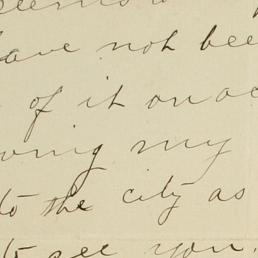 have not bee
of it on ac
ing my
to the city as
to see you.